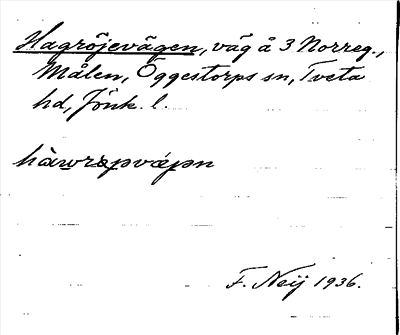 Hagröjevägen, väg å 3 Norreg.,
Målen, Öggestorps sn, Tveta
hd, Jönk. l.
F. Neij 1936.